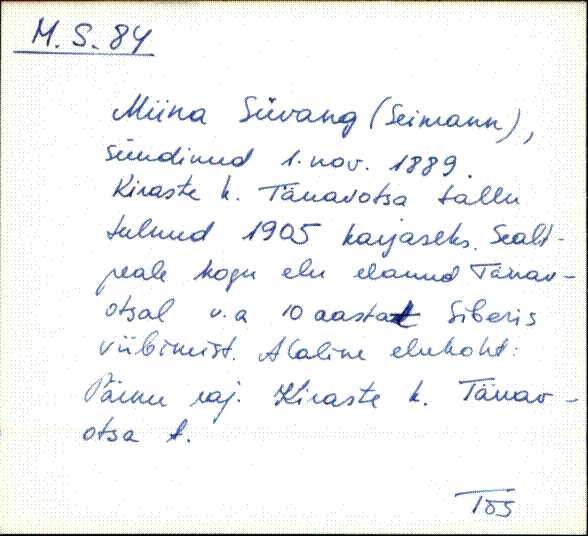 M. S. 84
Miina Süvang (Seimann),
sündinud 1. nov. 1889.
Kiraste k. Tänavotsa tallu
tulnud 1905 karjaseks. Sealt-
peale kogu elu elanud Tänav-
otsal v.a 10 aastat Siberis
viibimist. Alaline elukoht:
Pärnu raj. Kiraste k. Tänav-
otsa t.
Tõs